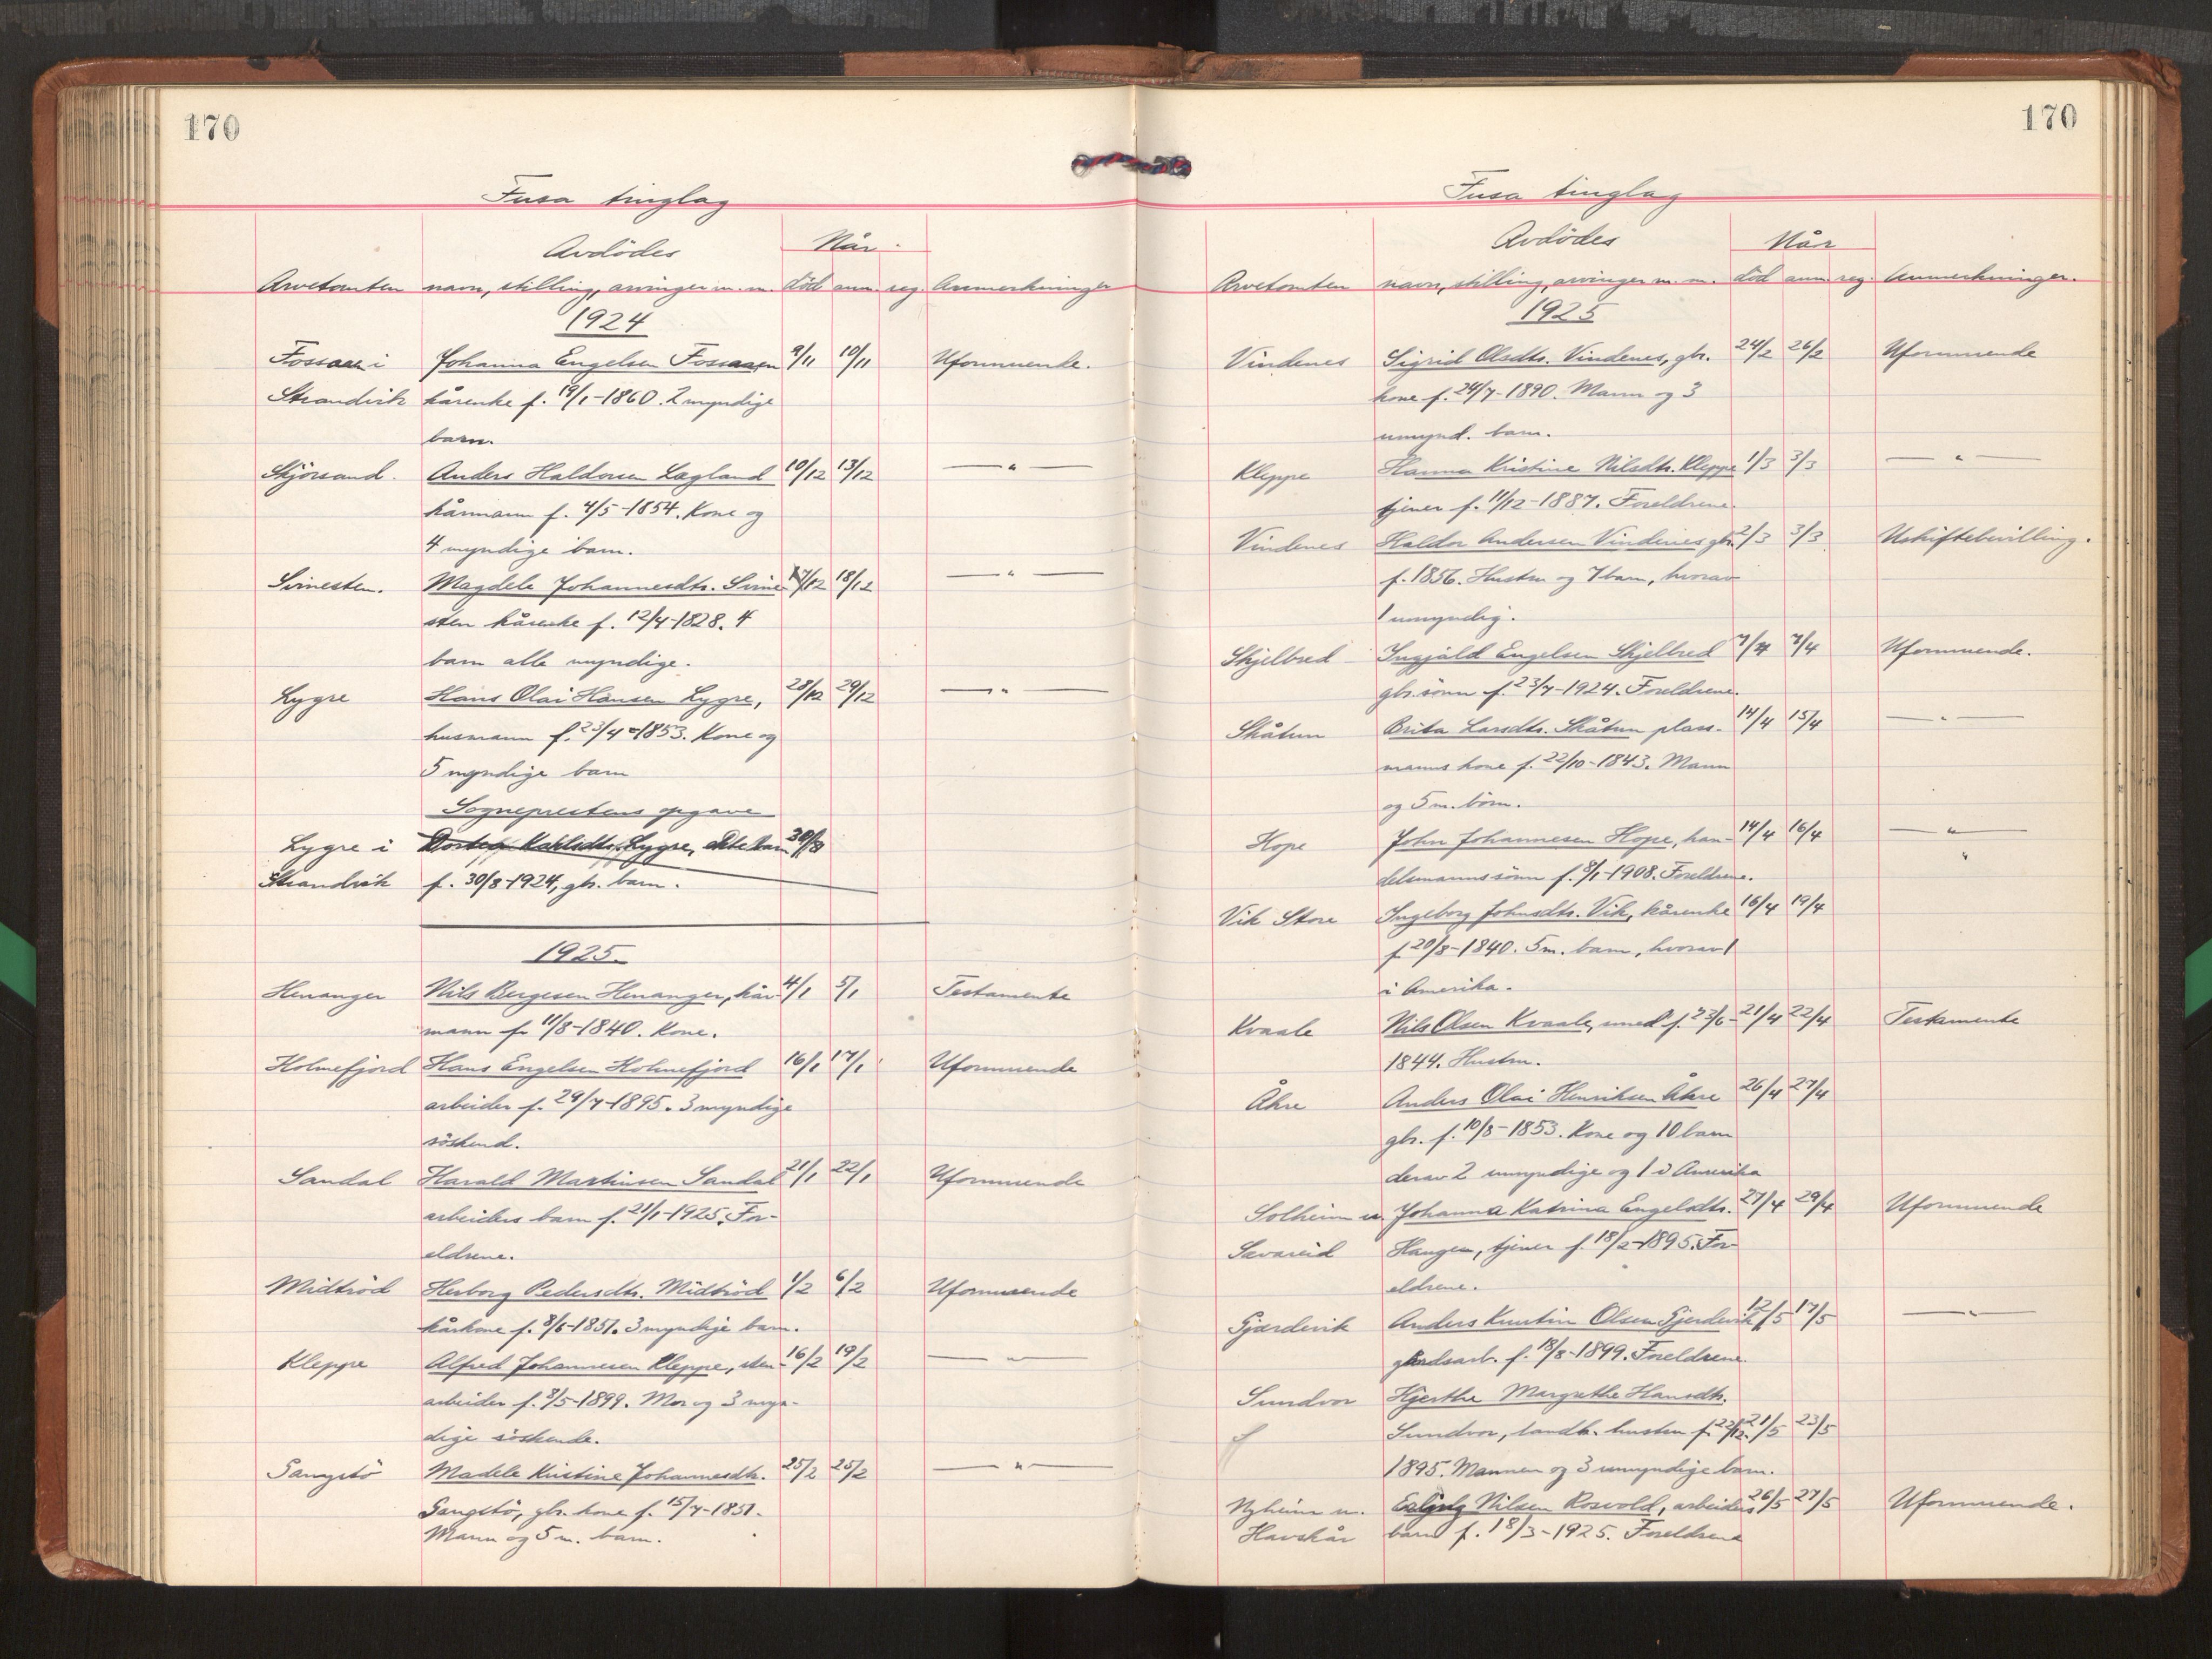 170
Fusa tinglag
Avdödes
Når
Arvetomten navn, stilling, arvinger m. m. död anm. reg. Anmerkninger
1924
Fossaae i Johanna Engelsen Fossaaen 9/11 10/11 Uformuende.
Strandvik kårenke f. 19/1-1860. 2 myndige
barn.
Skjörsand. Anders Haldorsen Lægland 10/12 13/12 — " —
kårmann f. 4/5-1854. Kone og
4 myndige barn.
Svinesten. Magdele Johannesdtr. Svine- 17/12 18/12 — " —
sten kårenke f. 12/4-1828. 4
barn alle myndige.
Lygre Hans Olai Hansen Lygre, 28/12 29/12 — " —
husmann f. 23/4-1853. Kone og
5 myndige barn
Sogneprestens opgave
Lygre i Lygre, 30/8
Strandvik f. 30/8-1924, gbr. barn.
1925.
Henanger Nils Bergesen Henanger, kår- 4/1 5/1 Testamente
mann f. 11/8-1840. Kone.
Holmefjord Hans Engelsen Holmefjord 16/1 17/1 Uformuende
arbeider f. 29/7-1895. 3 myndige
söskend.
Sandal Harald Martinsen Sandal 21/1 22/1 Uformuende
arbeiders barn f. 21/1-1925. For-
eldrene.
Midtröd Herborg Pedersdtr. Midtröd 1/2 6/2 Uformuende
kårkone f. 8/6-1851. 3 myndige barn.
Kleppe Alfred Johannesen Kleppe, sten- 16/2 19/2 — " —
arbeider f. 8/5-1899. Mor og 3 myn-
dige söskende.
Sangstö Madele Kristine Johannesdtr. 25/2 25/2 — " —
Sangstö, gbr. kone f. 15/7-1851.
Mann og 5 m. barn.
170
Fusa tinglag
Avdödes
Når
Arvetomten navn, stilling, arvinger m. m. död anm. reg. Anmerkninger.
1925
Vindenes Sigrid Olsdtr. Vindenes, gbr. 24/2 26/2 Uformuende
kone f. 24/7-1890. Mann og 3
umynd. barn.
Kleppe Hanna Kristine Nilsdtr. Kleppe 1/3 3/3 — " —
tjener f. 11/12-1887. Foreldrene.
Vindenes Haldor Andersen Vindenes gbr. 2/3 3/3 Uskiftebevilling.
f. 1856. Hustru og 7 barn, hvorav
1 umyndig.
Skjelbred Ingjald Engelsen Skjelbred 7/4 7/4 Uformuende.
gbr. sönn f. 23/7-1924. Foreldrene.
Skåtun Brita Larsdtr. Skåtun plass- 14/4 15/4 — " —
manns kone f. 22/10-1843. Mann
og 5 m. börn.
Hope John Johannesen Hope, han- 14/4 16/4 — " —
delsmannssönn f. 8/1-1908. Foreldrene. "
Vik Store Ingeborg Johnsdtr. Vik, kårenke 16/4 19/4
f. 20/8-1840. 5 m. barn, hvorav 1
i Amerika.
Kvaale Nils Olsen Kvaale, f. 23/6- 21/4 22/4 Testamente
1844. Hustru.
Åkre Anders Olai Henriksen Åkre 26/4 27/4
gbr. f. 10/8-1853. Kone og 10 barn
derav 2 umyndige og 1 i Amerika
Solheim u. Johanna Katrina Engelsdtr. 27/4 29/4 Uformuende
Sævareid Haugen, tjener f. 18/2-1895. For-
eldrene.
Gjærdevik Anders Olsen Gjerdevik 12/5 17/5 — " —
gårdsarb. f. 18/8-1899. Foreldrene.
Sundvor Hjerthe Margrethe Hansdtr.
Sundvor, landh. hustru f. 22/12- 21/5 23/5
1895. Mannen og 3 umyndige barn.
Nyheim u. Nilsen Rosvold, arbeiders 26/5 27/5 Uformuende.
Havskår barn f. 18/3-1925. Foreldrene